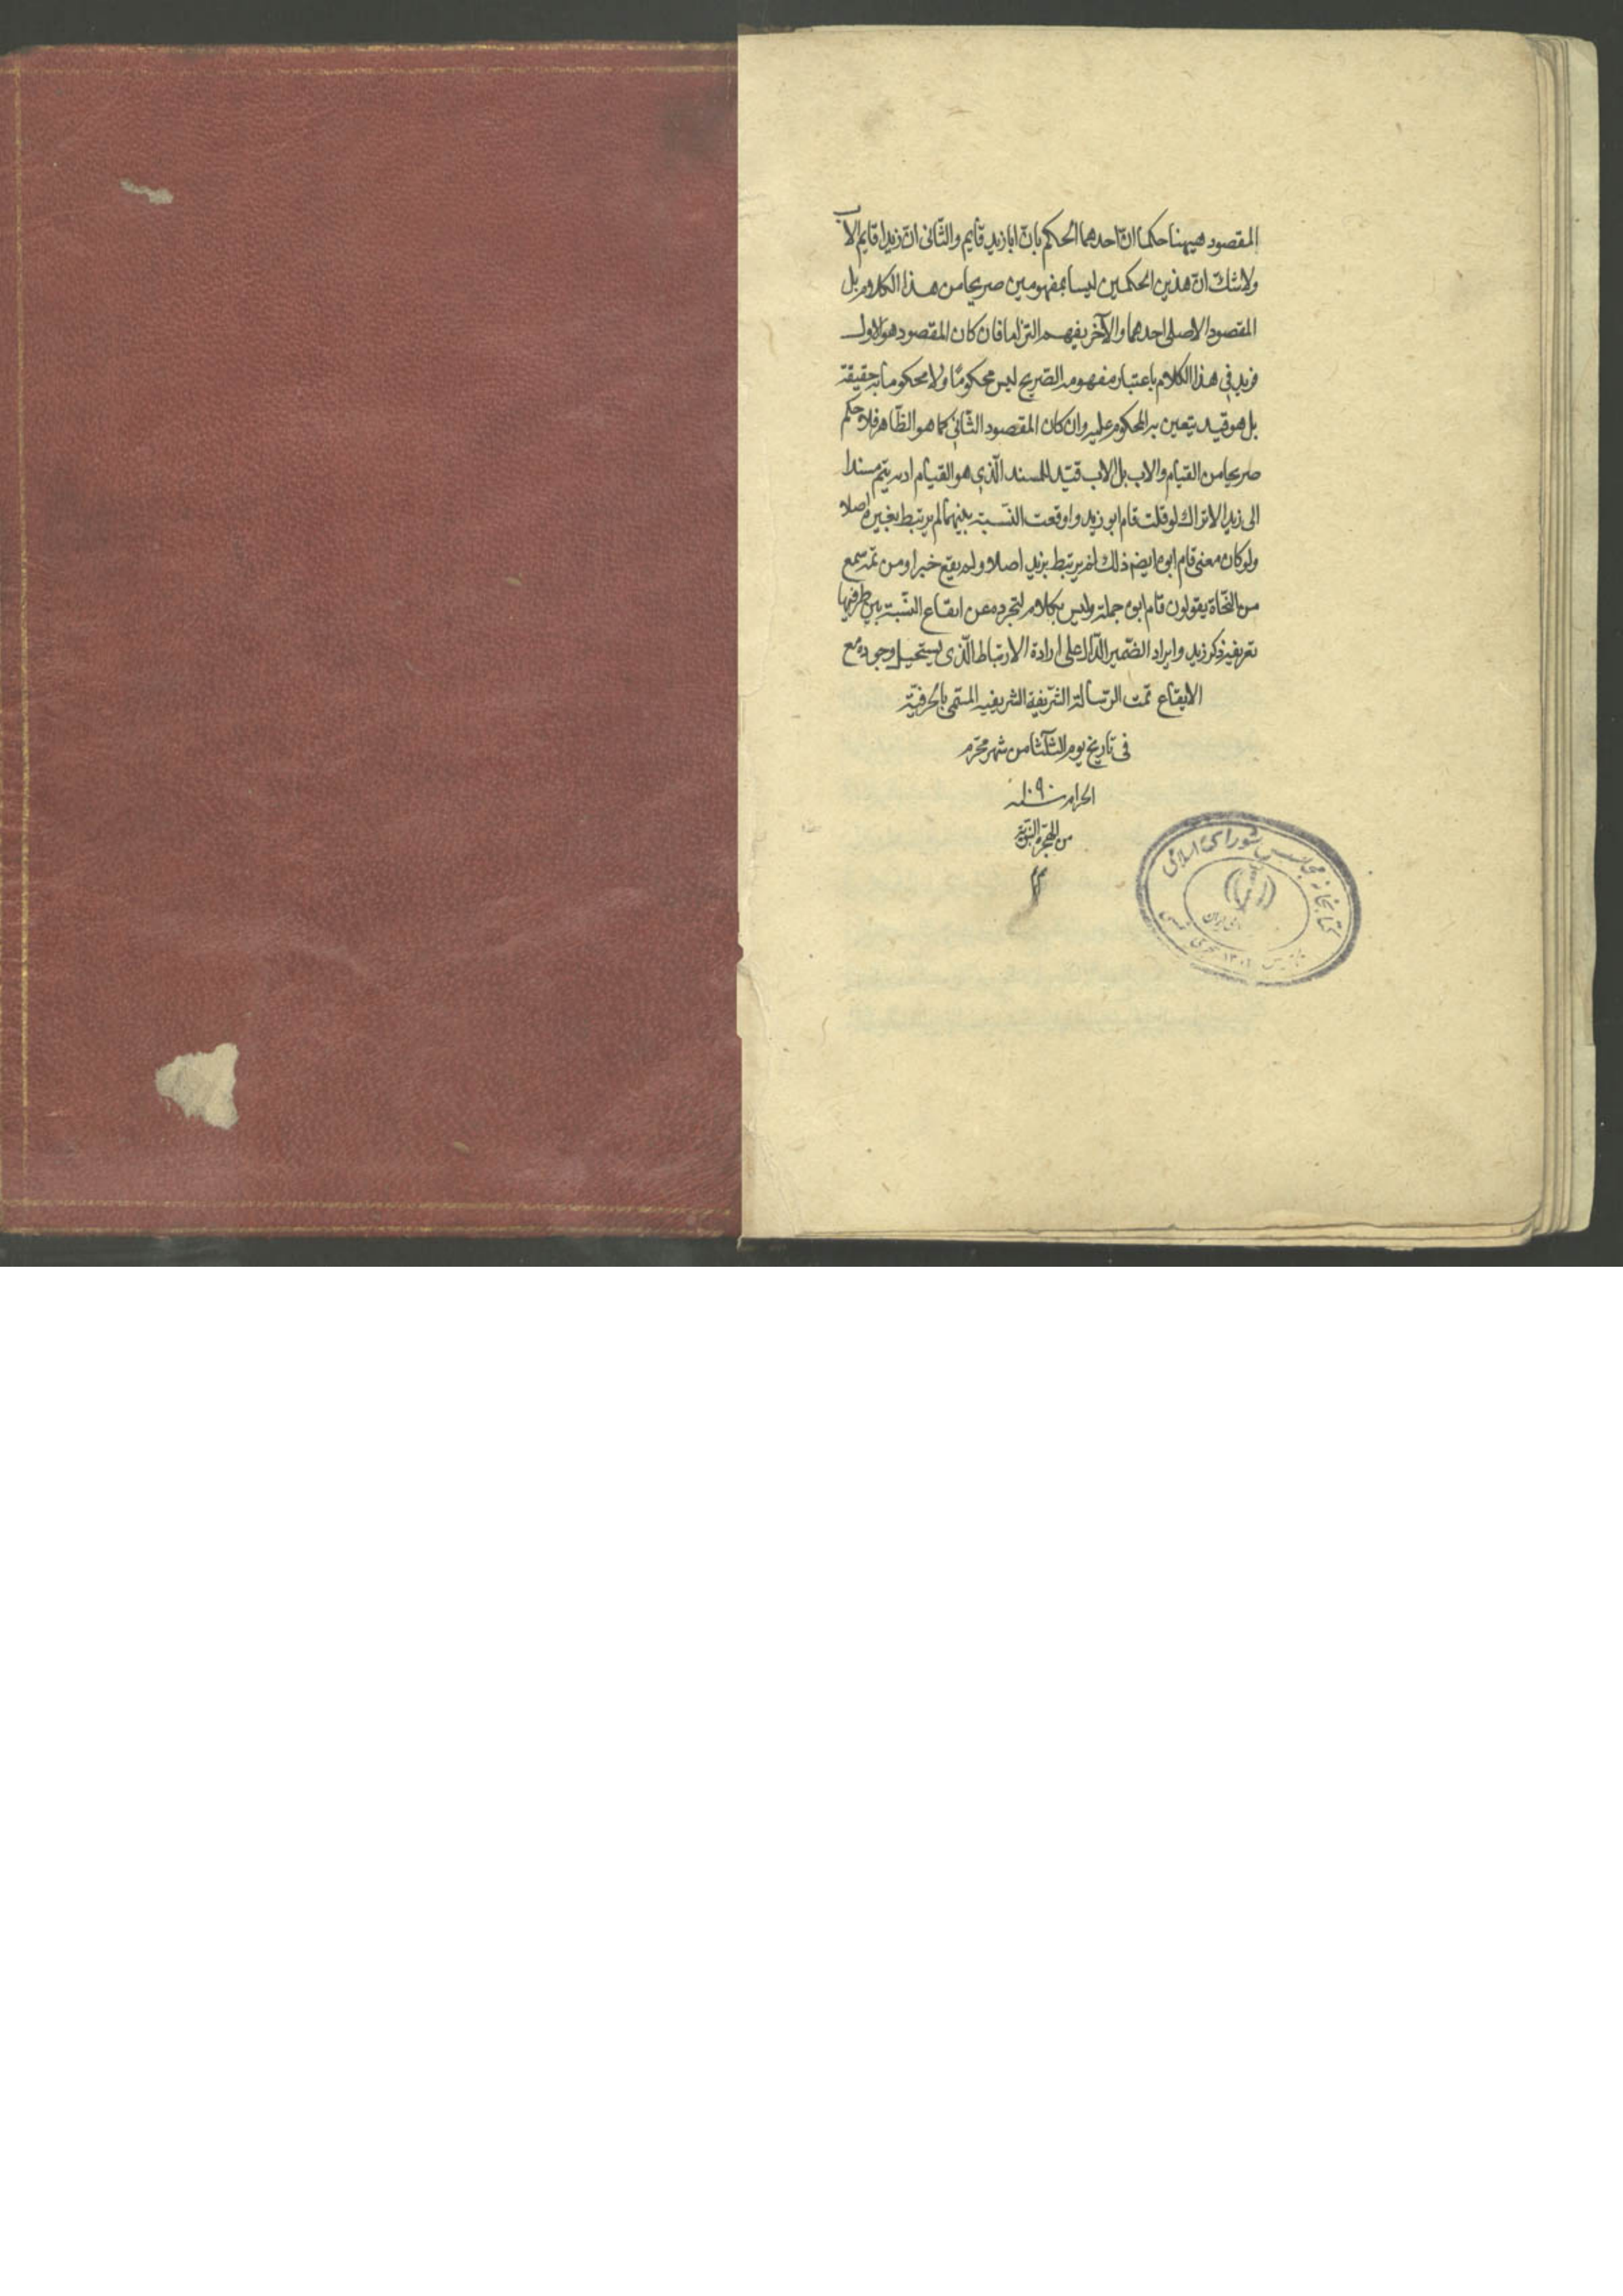 المقصود هيهنا حكمان احدهما الحكم بان ابا زيد قايم والثانى ان زيدا قايم الاب
ولاشك ان هذين الحكمين ليسا بمفهومين صريحا من هذا الكلام بل
المقصود الاصلى احدهما والآخر يفهم التزاما فان كان المقصود هو الاول
فزيد فى هذا الكلام باعتبار مفهومه الصّريح ليس محكومًا ولا محكوما به حقيقة
بل هو قيد يتعين به المحكوم عليه وان كان المقصود الثّانى كما هو الظّاهر فلا حكم
صريحا من القيام والاب بل الاب قيّد للمسند الّذى هو القيام اد به يتم مسندا
الى زيد الا تراك لو قلت قام ابو زيد واوقعت النّسبة بينهما لم يرتبط بغيره اصلا
ولو كان معنى قام ابوه ايضا ذلك لم يرتبط بزيد اصلا ولم يقع خبرا ومن ثمة تسمع
من النّحاة يقولون قام ابوه جملة وليس بكلام لتجرده عن ايقاع النّسبة بين طرفيها
بقرينة ذكر زيد وايراد الضّمير الدّال على ارادة الارتباط الّذى يستحيل وجوده مع
الايقاع تمّت الرّسالة الشّريفة الشريفيه المسمّى بالحرفيّة
فى تاريخ يوم الثلثا من شهر محرّم
الحرام سنه ١٠٩٠
من الهجرة النبويّة
كتابخانه مجلس شوراى اسلامى